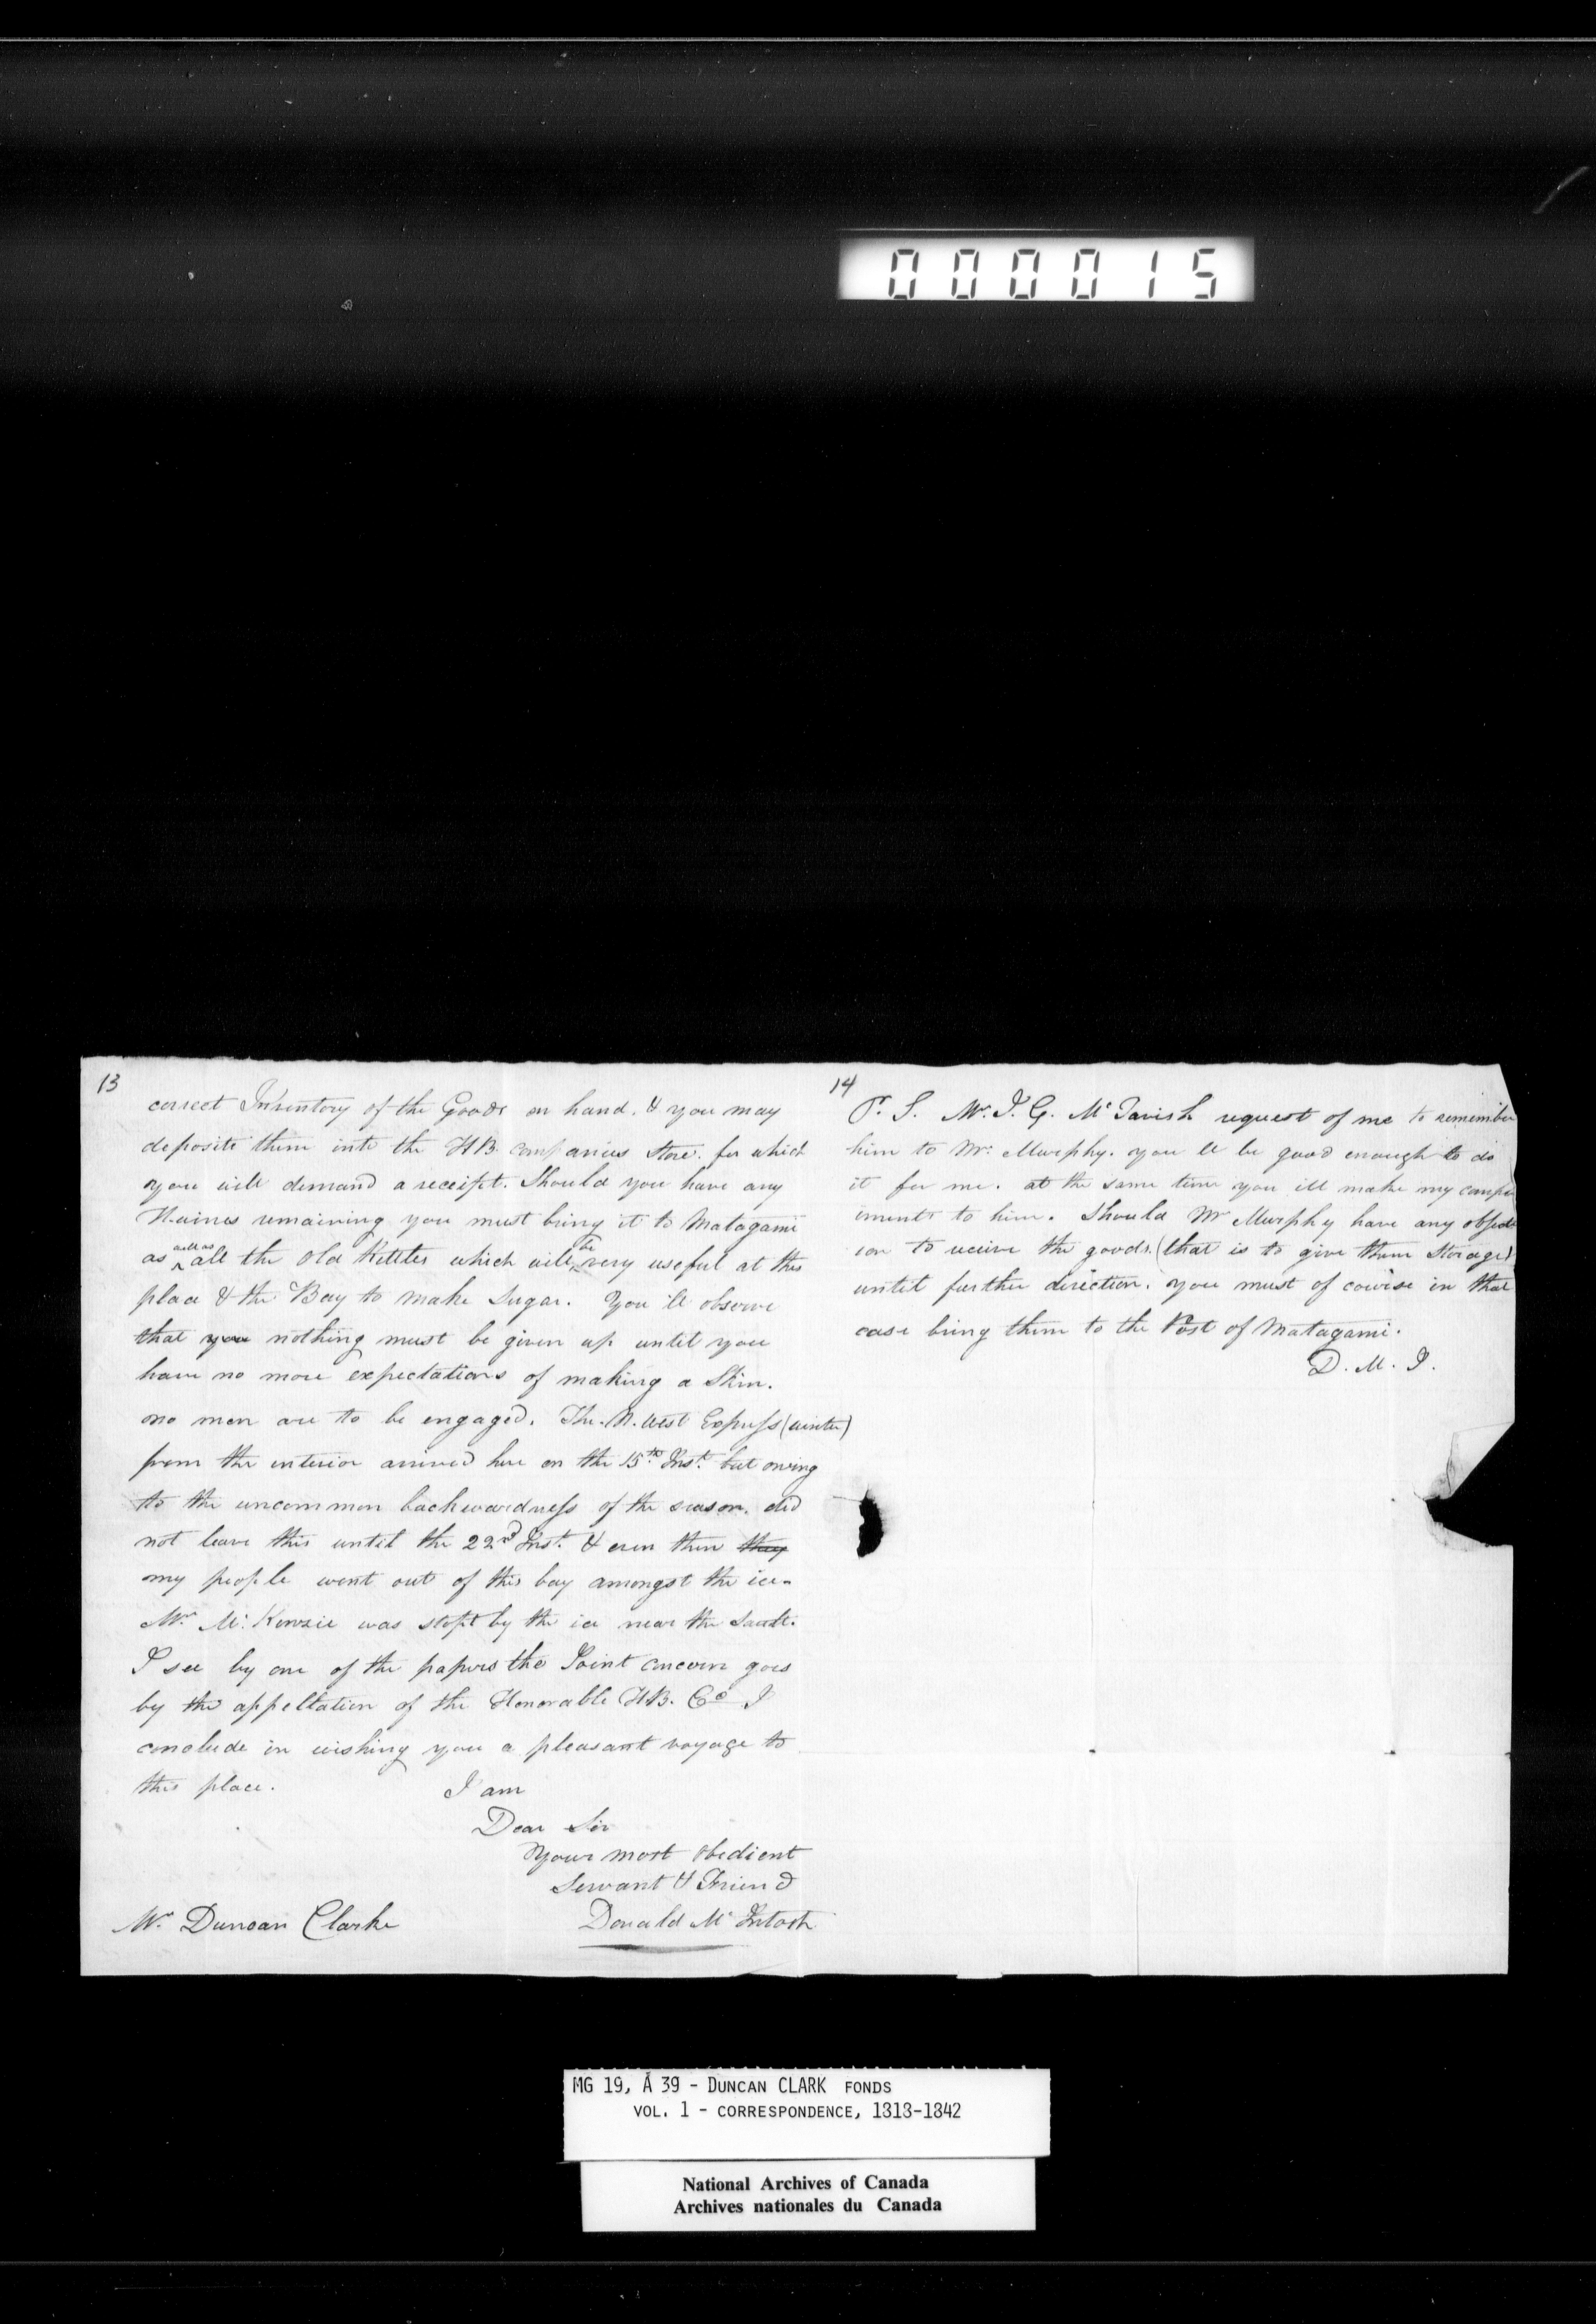 000015
13
correct Inventory of the Goods on hand. & you may
deposite them into the HB. companies Store. for which
you will demand a receipt. Should you have any
remaining you must bring it to Matagami
as well as all the old Kettles which will be very useful at this
place & the Bay to make Sugar. You'll observe
that you nothing must be given up until you
have no more expectations of making a Skin.
no men are to be engaged. The N. West Express (winter)
from the interior arrived here on the 15th. Inst. but owing
to the uncommon backwardness of the season. did
not leave this until the 22nd Inst. & even then they
my people went out of this bay amongst the ice.
Mr. Mc.Kenzie was stopt by the ice near the Sault.
I see by one of the papers the Joint concern goes
by the appellation of the Honorable HB. Co I
conclude in wishing you a pleasant voyage to
this place. I am
Dear Sir
Your most obedient
Servant & Friend
Mr. Duncan Clarke Donald Mc Intosh
14
P. S. Mr. J. G. Mc Tavish request of me to remember
him to Mr. Murphy. you ll be good enough to do
it for me. at the same time you ill make my compl
iments to him. Should Mr Murphy have any object
ion to receive the goods. (that is to give them Storage)
until further direction. you must of course in that
case bring them to the Post of Matagami.
D. M. I.
MG 19, A 39 - DUNCAN CLARK FONDS
VOL. 1 - CORRESPONDENCE, 1818-1842
National Archives of Canada
Archives nationales du Canada